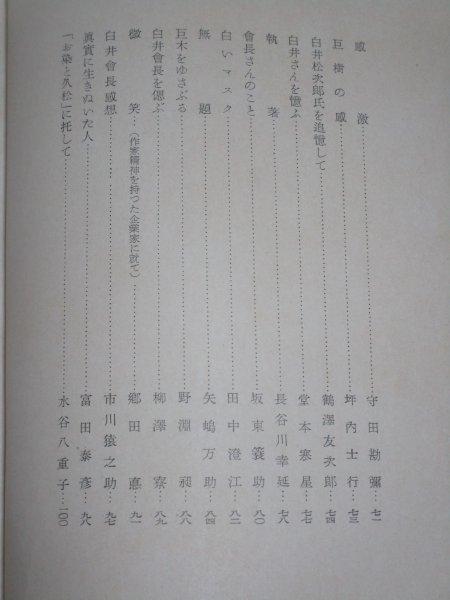 感激……守田勘彌…七一
巨樹の感……坪内士行…七三
白井松次郎氏を追憶して……鶴澤友次郎…七四
白井さんを憶ふ……堂本寒星…七七
執著……長谷川幸延…七八
會長さんのこと……坂東簑助…八〇
白いマスク……田中澄江…八二
無題……矢嶋万助…八四
巨木をゆさぶる……野淵昶…八八
白井會長を偲ぶ……柳澤寮…八九
微笑…(作家精神を持つた企業家に就て)……郷田悳…九一
白井會長感想……市川猿之助…九七
眞實に生きぬいた人……富田泰彦…九八
「お染と久松」に托して……水谷八重子…一〇〇